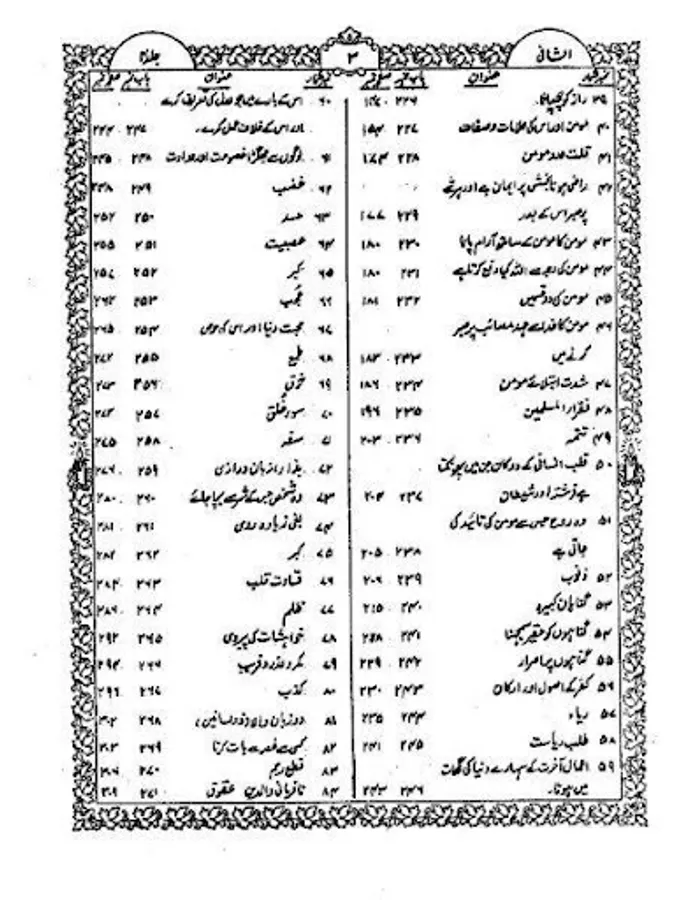 الشانی ۳ جلد۴
نمبر شمار عنوان باب نمبر صفحہ نمبر
۳۹ راز کو چھپانا ۲۲۶ ۱۴۰
۴۰ مومن اور اس کی علامات و صفات ۲۲۷ ۱۵۴
۴۱ قلت عدد مومن ۲۲۸ ۱۷۴
۴۲ راضی ہونا بخشش پر ایمان ہے اور ہر شے
پر صبر اس کے بعد ۲۲۹ ۱۷۷
۴۳ مومن کا مومن کے ساتھ آرام پانا ۲۳۰ ۱۸۰
۴۴ مومن کی وجہ سے اللہ کیا دفع کرتا ہے ۲۳۱ ۱۸۰
۴۵ مومن کی دو قسمیں ۲۳۲ ۱۸۱
۴۶ مومن کا خدا سے عہد مصائب پر صبر
کرنے میں ۲۳۳ ۱۸۳
۴۷ شدت ابتلائے مومن ۲۳۴ ۱۸۶
۴۸ فقراء المسلمین ۲۳۵ ۱۹۶
۴۹ تتمہ ۲۳۶ ۲۰۳
۵۰ قلب انسانی کے دو کان جن میں پھونکتا
ہے فرشتہ اور شیطان ۲۳۷ ۲۰۴
۵۱ وہ روح جس سے مومن کی تائید کی
جاتی ہے ۲۳۸ ۲۰۵
۵۲ ذنوب ۲۳۹ ۲۰۶
۵۳ گناہان کبیرہ ۲۴۰ ۲۱۵
۵۴ گناہوں کو حقیر سمجھنا ۲۴۱ ۲۲۸
۵۵ گناہوں پر اصرار ۲۴۲ ۲۲۹
۵۶ کفر کے اصول اور ارکان ۲۴۳ ۲۳۰
۵۷ ریاء ۲۴۴ ۲۳۵
۵۸ طلب ریاست ۲۴۵ ۲۴۱
۵۹ اعمال آخرت کے سہارے دنیا کی گھات
میں ہونا۔ ۲۴۶ ۲۴۳
نمبر شمار عنوان باب نمبر صفحہ نمبر
۶۰ اس کے بارے میں جو عدل کی تعریف کرے
اور اس کے خلاف عمل کرے۔ ۲۴۷ ۲۴۴
۶۱ لوگوں سے جھگڑا خصومت اور عداوت ۲۴۸ ۲۴۵
۶۲ غضب ۲۴۹ ۲۴۸
۶۳ حسد ۲۵۰ ۲۵۲
۶۴ عصبیت ۲۵۱ ۲۵۵
۶۵ کبر ۲۵۲ ۲۵۷
۶۶ عُجب ۲۵۳ ۲۶۲
۶۷ محبت دنیا اور اس کی حرص ۲۵۴ ۲۶۵
۶۸ طمع ۲۵۵ ۲۷۲
۶۹ خرق ۲۵۶ ۲۷۳
۷۰ سوء خلق ۲۵۷ ۲۷۴
۷۱ سفہ ۲۵۸ ۲۷۵
۷۲ بذاء زبان درازی ۲۵۹ ۲۷۶
۷۳ وہ شخص جس کے شر سے بچا جائے ۲۶۰ ۲۸۰
۷۴ بغی زیادہ روی ۲۶۱ ۲۸۱
۷۵ کبر ۲۶۲ ۲۸۲
۷۶ قساوت قلب ۲۶۳ ۲۸۴
۷۷ ظلم ۲۶۴ ۲۸۶
۷۸ خواہشات کی پیروی ۲۶۵ ۲۹۲
۷۹ مکر و غدر و فریب ۲۶۶ ۲۹۴
۸۰ کذب ۲۶۷ ۲۹۶
۸۱ دو زبان والا (ذو لسانین) ۲۶۸ ۳۰۲
۸۲ کسی سے غصہ سے بات کرنا ۲۶۹ ۳۰۳
۸۳ قطع رحم ۲۷۰ ۳۰۶
۸۴ نافرمانی والدین عقوق ۲۷۱ ۳۰۹